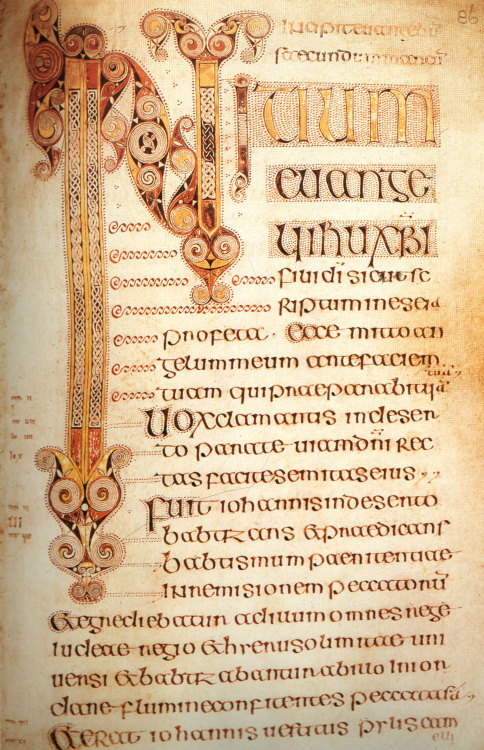 86
INITIUM
EUANGE
LII IHU XPI
FILII DI SICUT SC
RIPTUM IN ESEIA
profeta Ecce mitto an
gelum meum ante faciem
tuam qui praeparabit uiā tuā
UOX clamantis in deser
to parate uiam dn̄i rec
tas facite semitas eius
FUIT iohannis in deserto
babtizans & praedicans
babtismum paenitentiae
in remisionem peccatorū
& egrediebatur ad illum omnes
iudeae regio & hierusolimitae uni
uersi & babtizabantur ab illo in ior
dane flumine confitentes peccata sa
& erat iohannis uestitus pylis cam
elli